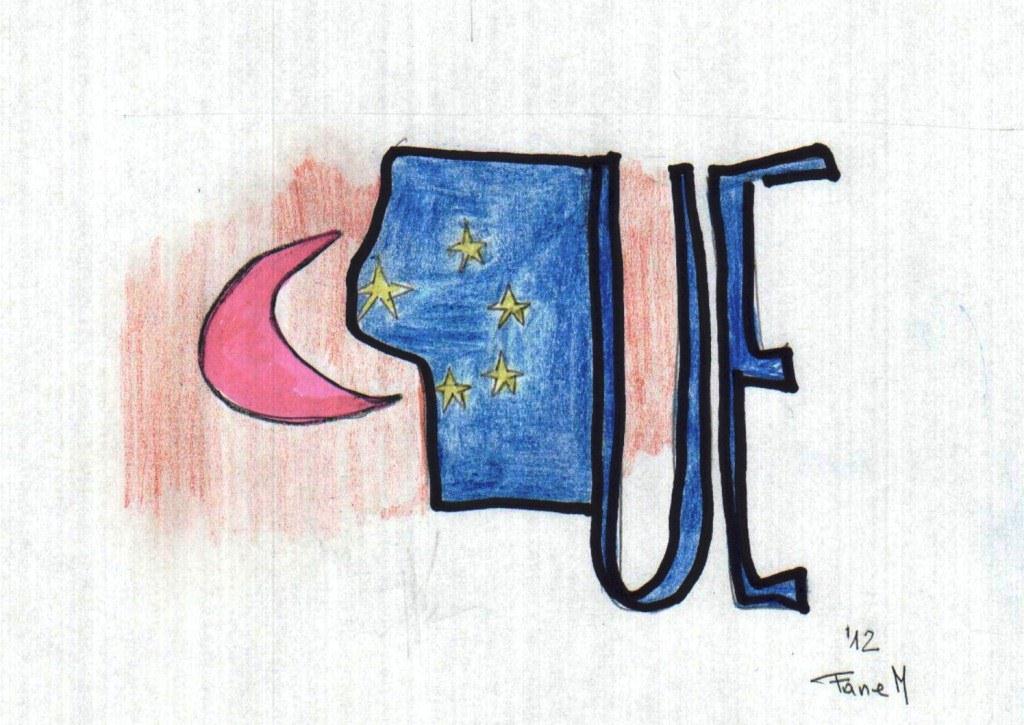 UE
'12
Fane M